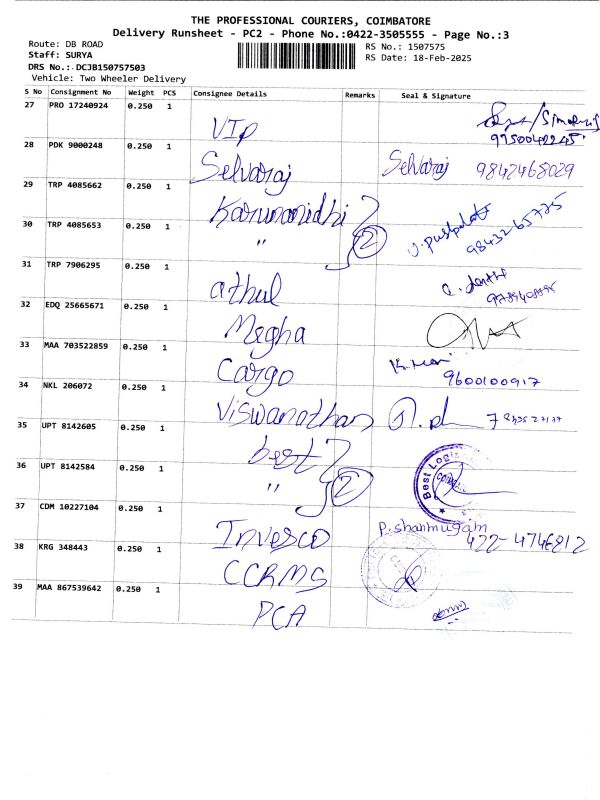 THE PROFESSIONAL COURIERS, COIMBATORE
Delivery Runsheet - PC2 - Phone No.:0422-3505555 - Page No.:3
Route: DB ROAD
RS No.: 1507575
Staff: SURYA
RS Date: 18-Feb-2025
DRS No.: DCJB150757503
Vehicle: Two Wheeler Delivery
S No Consignment No Weight PCS Consignee Details Remarks Seal & Signature
27 PRO 17240924 0.250 1 VIP
9750042245
28 PDK 9000248 0.250 1 Selvaraj Selvaraj 9842468029
29 TRP 4085662 0.250 1 Karunanidhi
30 TRP 4085653 0.250 1 " 2 9843265775
31 TRP 7906295 0.250 1 athul
32 EDQ 25665671 0.250 1 Megha
33 MAA 703522859 0.250 1 Cargo 9600100917
34 NKL 206072 0.250 1 Viswanathan
35 UPT 8142605 0.250 1 best
36 UPT 8142584 0.250 1 " 2 Best Logi
37 CDM 10227104 0.250 1 Invesco P. Shanmugam
422-4746812
38 KRG 348443 0.250 1 CCRMS
39 MAA 867539642 0.250 1 PCA